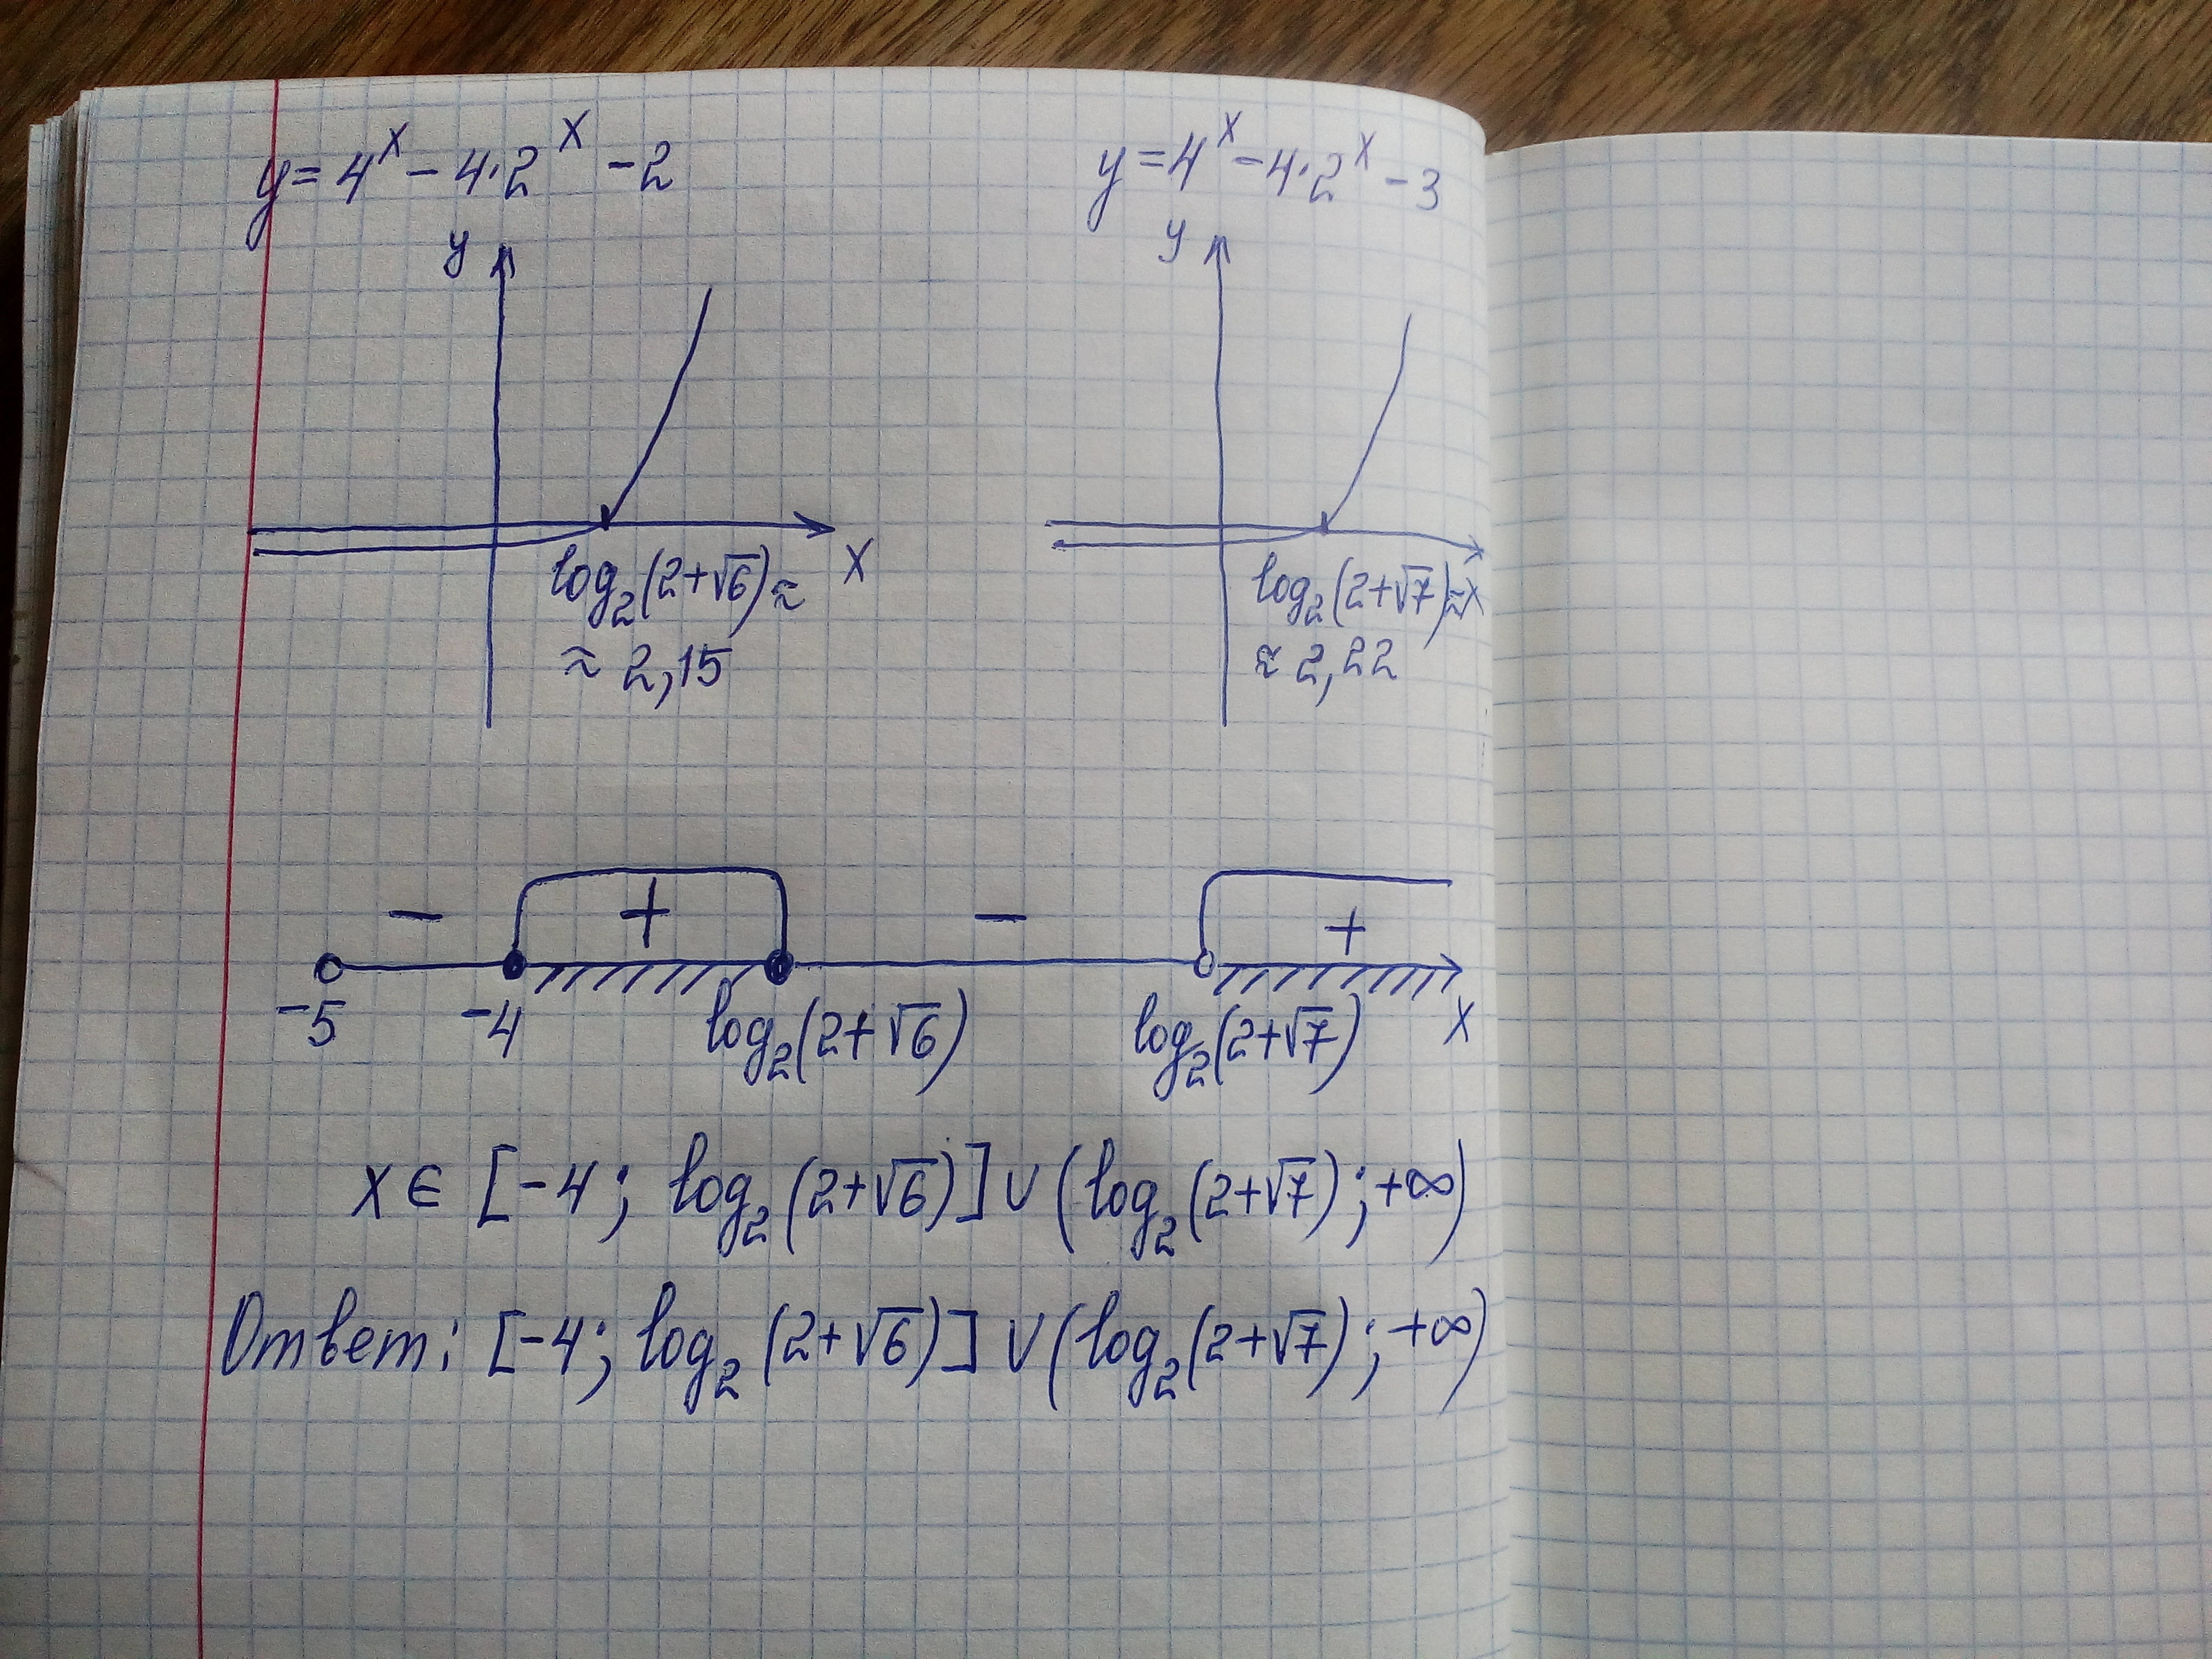 y = 4^x - 4·2^x - 2
y = 4^x - 4·2^x - 3
y
y
log₂(2+√6) ≈
≈ 2,15
x
log₂(2+√7) ≈
≈ 2,22
x
- + - +
-5 -4 log₂(2+√6) log₂(2+√7) x
x ∈ [-4; log₂(2+√6)] ∪ (log₂(2+√7); +∞)
Ответ: [-4; log₂(2+√6)] ∪ (log₂(2+√7); +∞)